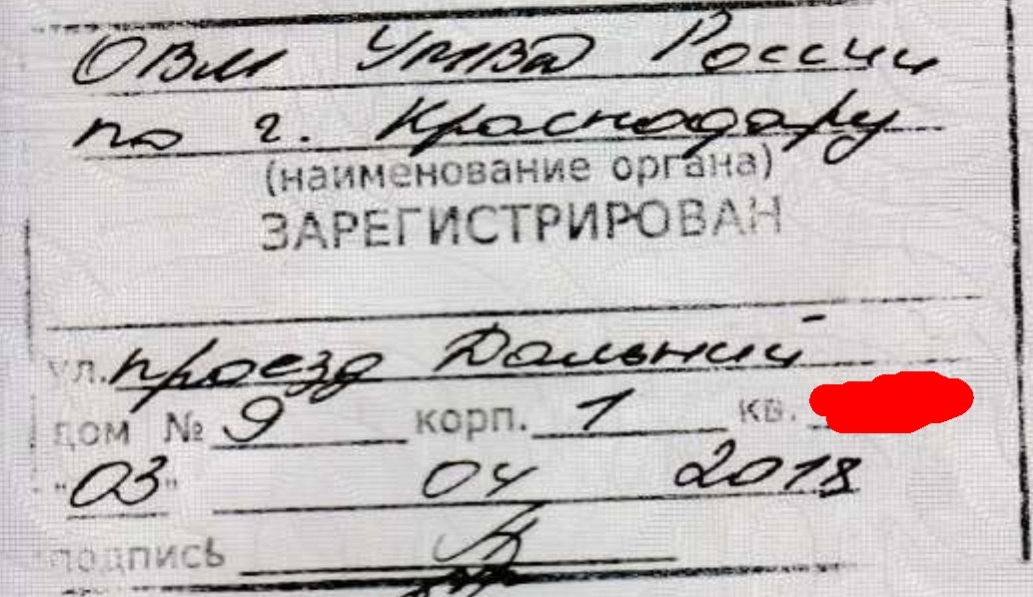 ОВМ УМВД России
по г. Краснодару
(наименование органа)
ЗАРЕГИСТРИРОВАН
ул. проезд Дальний
дом № 9 корп. 1 кв.
"03" 04 2018
подпись